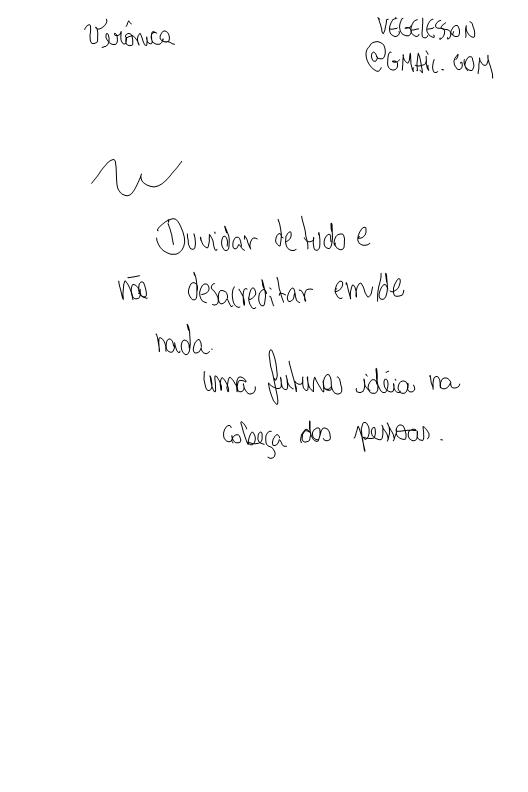 Verônica
VEGELESSON
@GMAIL.COM
Duvidar de tudo e
não desacreditar em/de
nada.
uma futura idéia na
cabeça das pessoas.